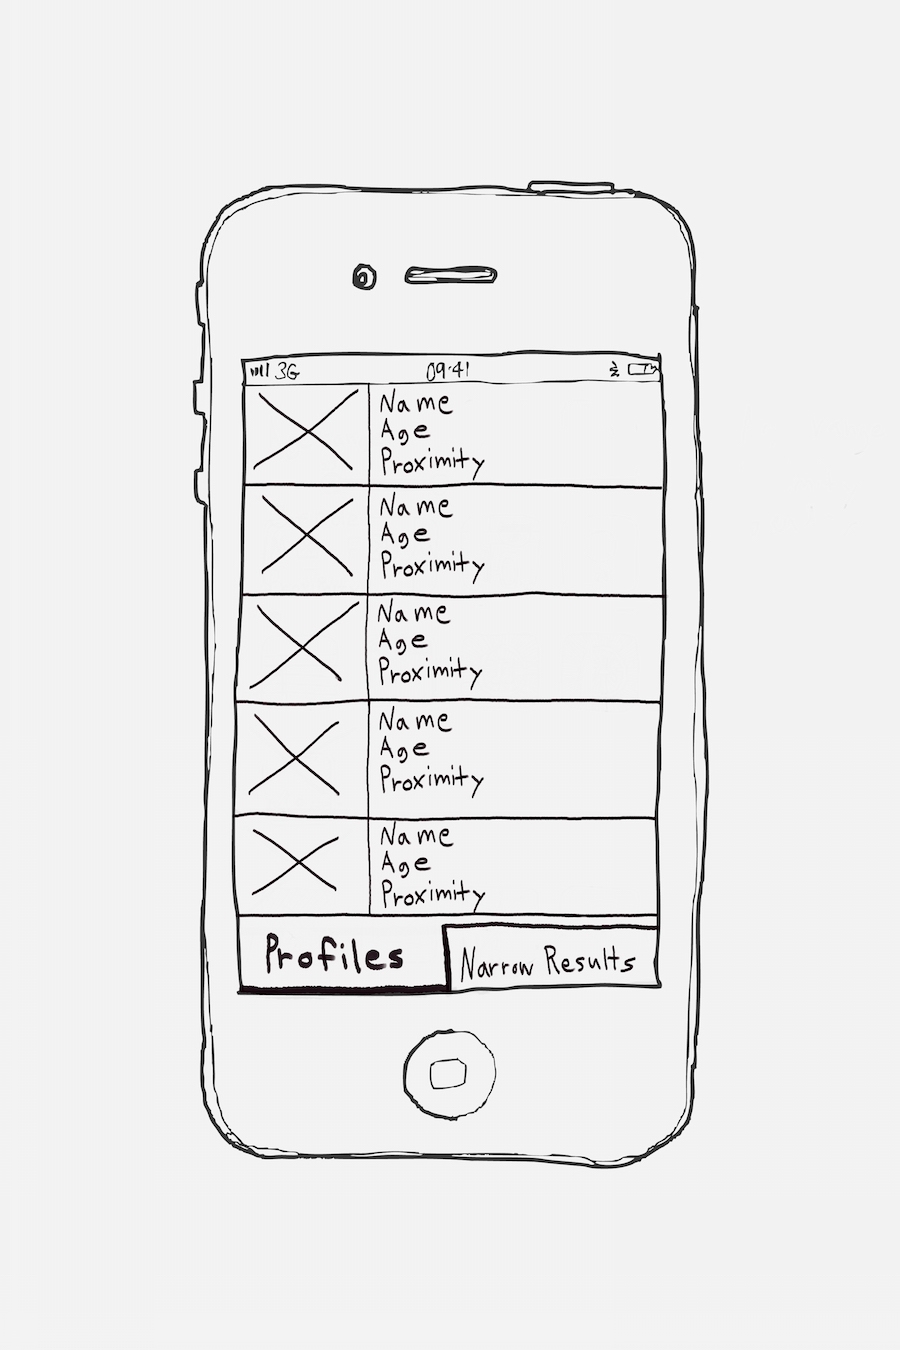 3G 09:41
Name
Age
Proximity
Name
Age
Proximity
Name
Age
Proximity
Name
Age
Proximity
Name
Age
Proximity
Profiles
Narrow Results